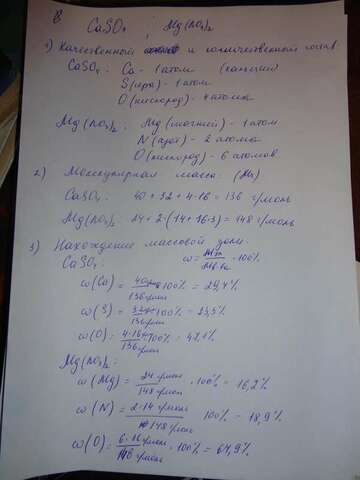 8
CaSO₄ ; Mg(NO₃)₂
1) Качественный и количественный состав.
CaSO₄: Ca - 1 атом (кальций)
S (сера) - 1 атом
O (кислород) - 4 атома
Mg(NO₃)₂: Mg (магний) - 1 атом
N (азот) - 2 атома
O (кислород) - 6 атомов
2) Молекулярная масса: (Mr)
CaSO₄: 40 + 32 + 4·16 = 136 г/моль
Mg(NO₃)₂: 24 + 2·(14+16·3) = 148 г/моль
3) Нахождение массовой доли.
CaSO₄: ω = · 100%
ω(Ca) = 40 / 136 г/моль · 100% = 29,4%
ω(S) = 32 / 136 г/моль · 100% = 23,5%
ω(O) = 4·16 / 136 г/моль · 100% = 47,1%
Mg(NO₃)₂:
ω(Mg) = 24 г/моль / 148 г/моль · 100% = 16,2%
ω(N) = 2·14 г/моль / 148 г/моль · 100% = 18,9%
ω(O) = 6·16 г/моль / 148 г/моль · 100% = 64,9%